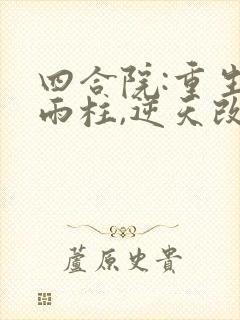 四合院:重生
雨柱,逆天改
蘆原史貴